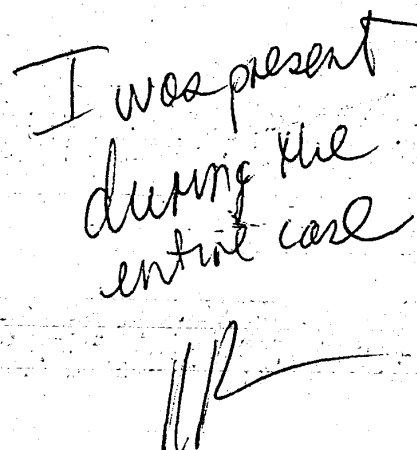 I was present
during the
entire case